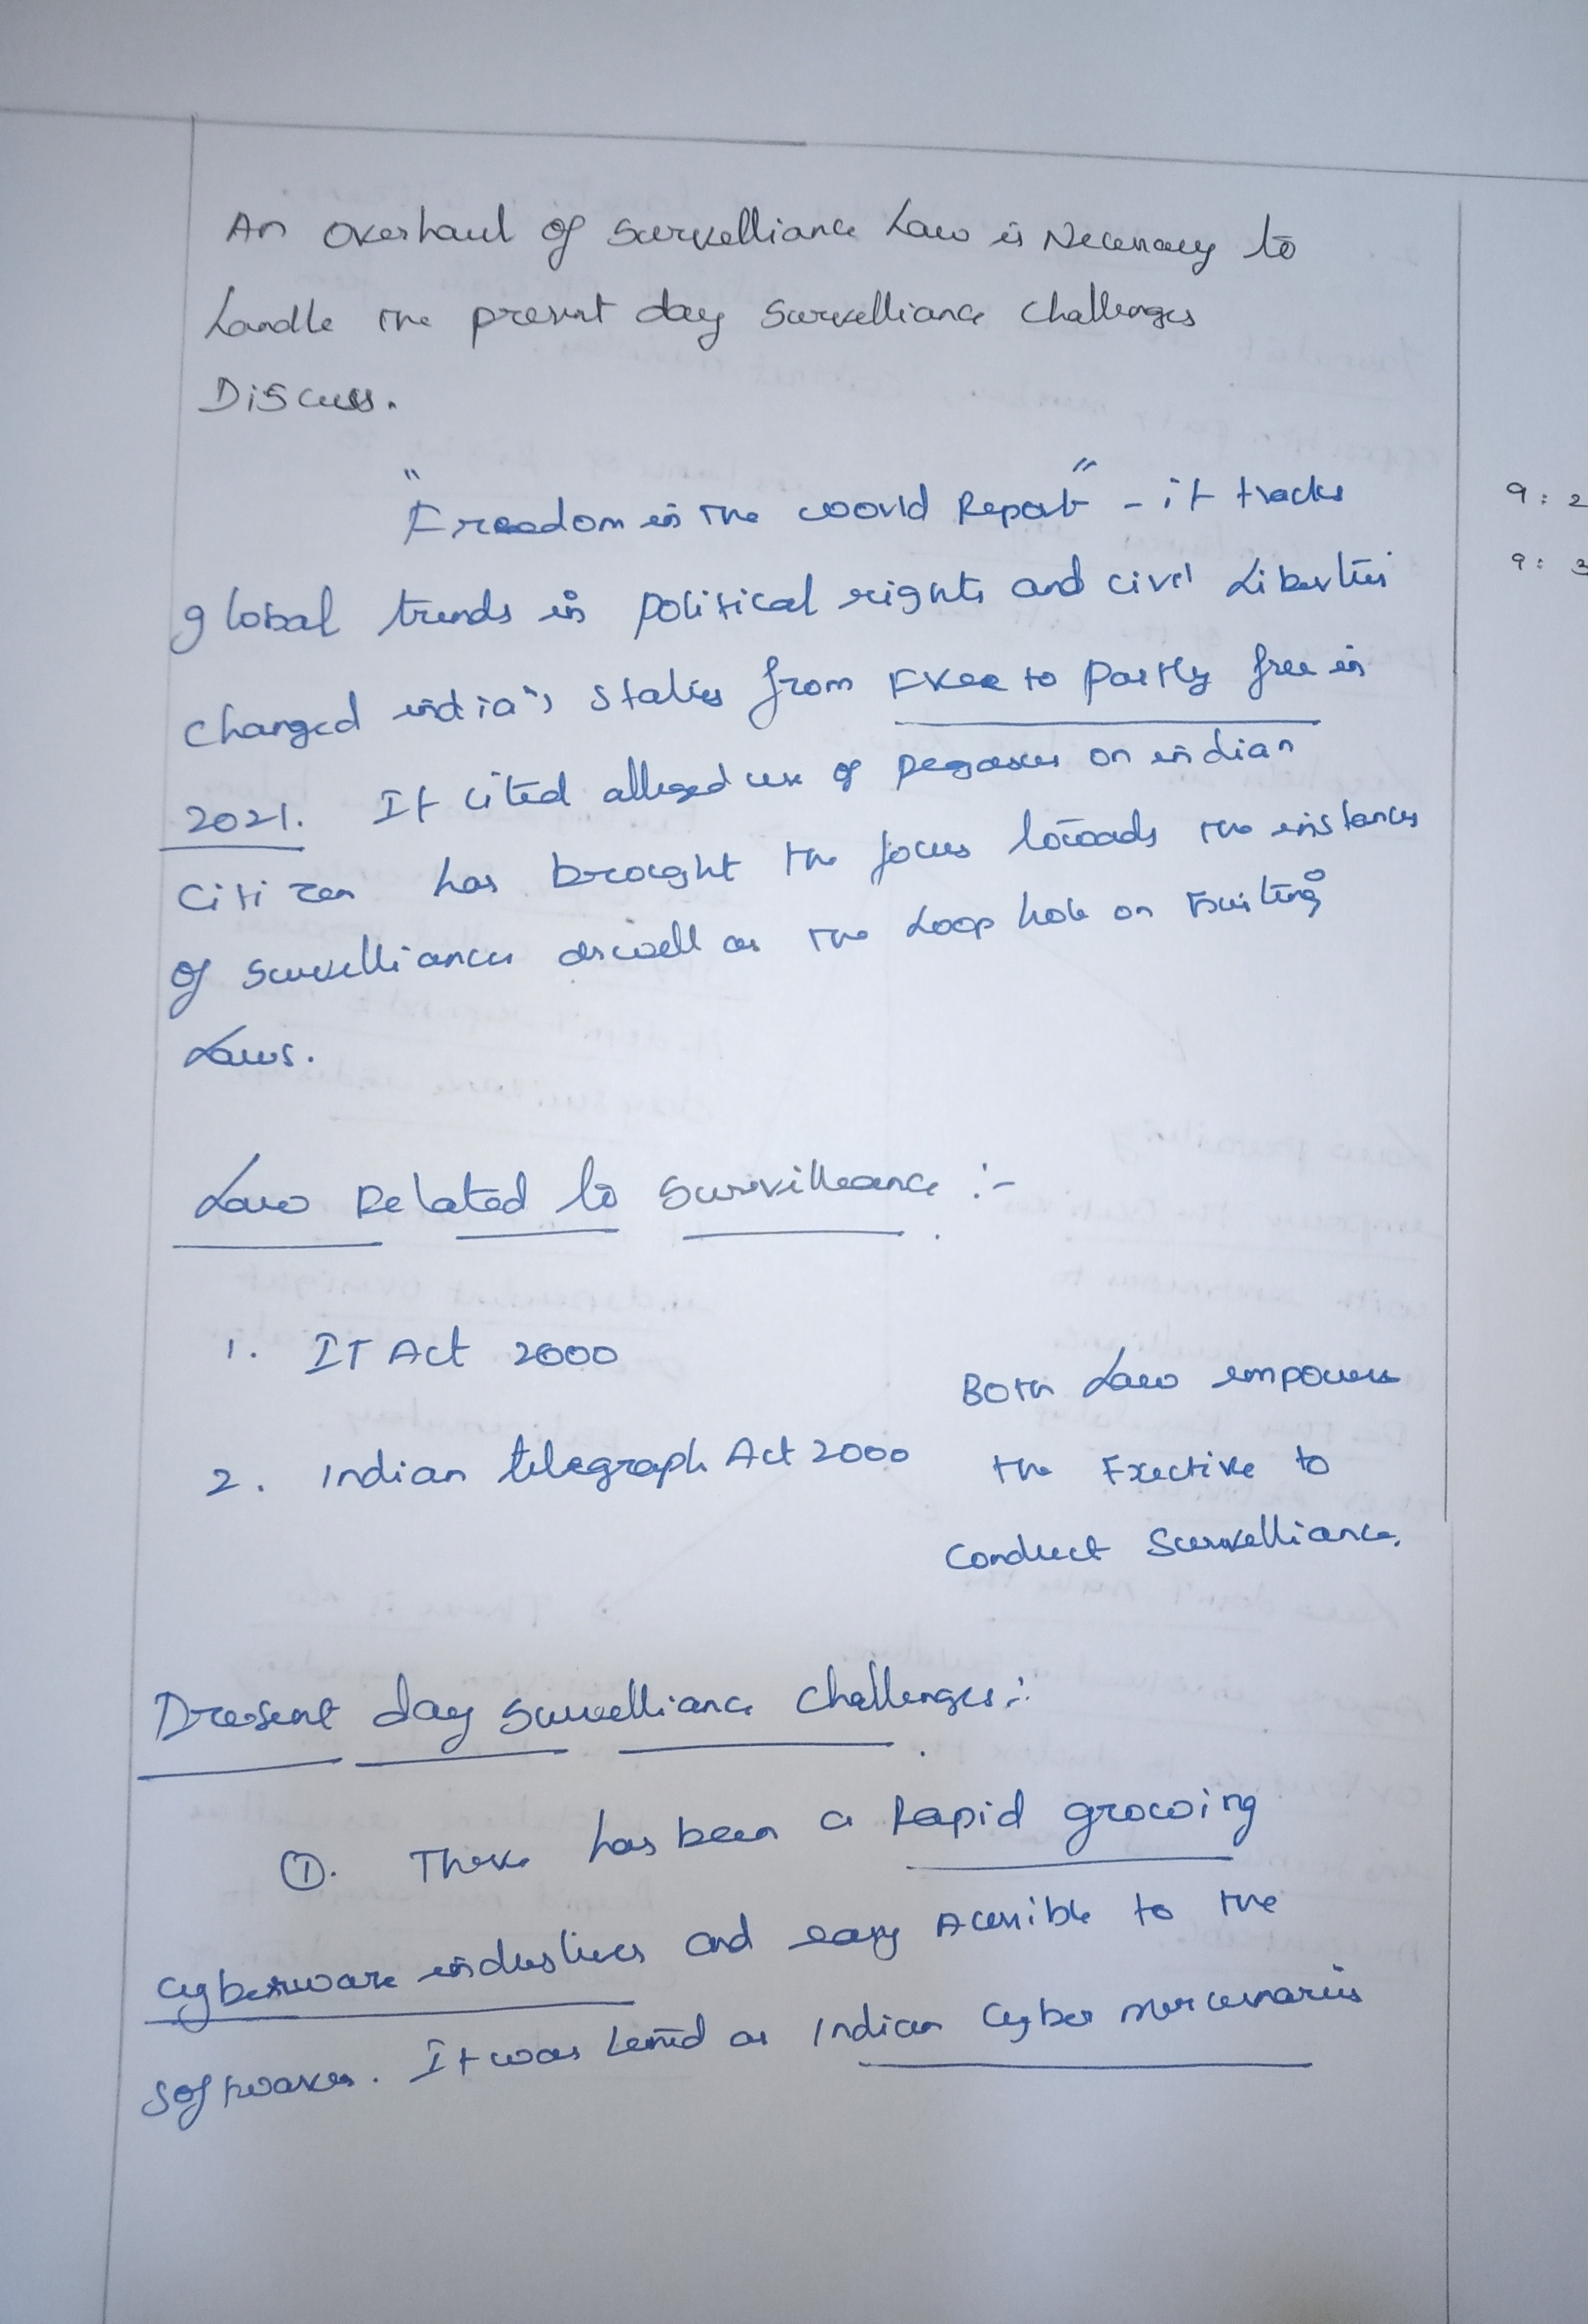 An Overhaul of Survelliance Law is Necessary to
handle the present day Survelliance challenges
Discuss.
"Freedom in the World Report" - it tracks
9: 2
global trends in political rights and civil Liberties
9: 3
changed india's status from Free to partly free in
2021. It cited alleged use of pegasus on indian
Citizen has brought the focus towards the instances
of Survelliances as well as the Loop hole on Exiting
Laws.
Law Related to Survilleance :-
1. IT Act 2000
2. Indian telegraph Act 2000
Both Law empowers
the Exective to
Conduct Survelliance.
Present day Survelliance challenges :-
①. There has been a Rapid growing
cyberware industries and easy Acessible to the
Softwares. It was termed as Indian Cyber mercenaries